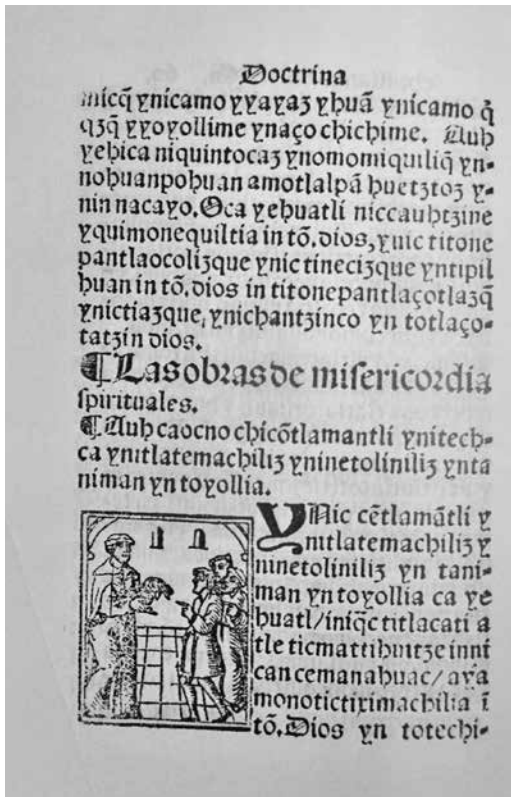 Doctrina
micq̃ ynicamo yyayaz yhuã ynicamo q̃
qzq̃ yyoyollime ynaço chichime. Auh
yehica niquintocaz ynomomiquiliq̃ yn-
nohuanpohuan amotlalpã huetztoz y-
nin nacayo. Oca yehuatli niccauhtzine
yquimonequiltia in tõ. dios, ynic titone
pantlaocolizque ynic tinecizque yntipil
huan in tõ. dios in titonepantlaçotlazq̃
ynictiazque, ynichantzinco yn totlaço-
tatzin dios.
¶ Las obras de misericordia
spirituales.
¶ Auh caocno chicõtlamantli ynitech-
ca ynitlatemachiliz yninetoliniliz ynta
niman yn toyollia.
YNic cẽtlamãtli y
nitlatemachiliz y
ninetoliniliz yn tani-
man yn toyollia ca ye
huatl/iniq̃c titlacati a
tle ticmattihuitze inni
can cemanahuac/ aya
monotictiximachilia ĩ
tõ. Dios yn totechi-